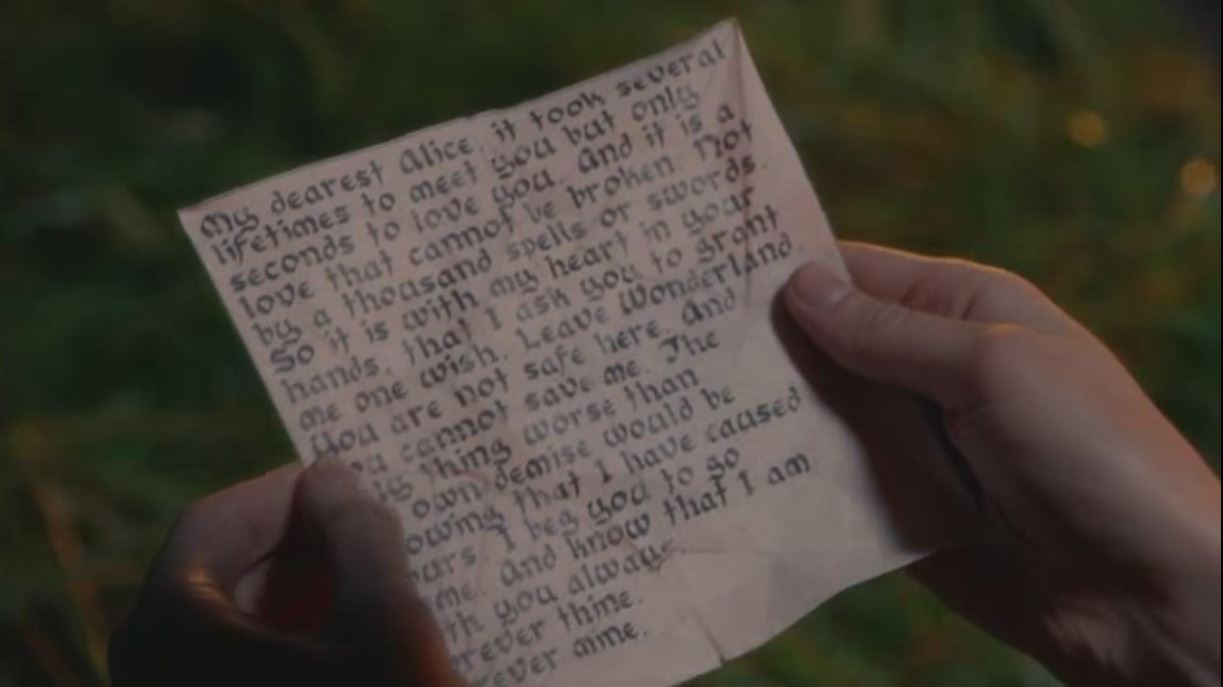 My dearest Alice it took several
lifetimes to meet you but only
seconds to love you. And it is a
love that cannot be broken. Not
by a thousand spells or swords.
So it is with my heart in your
hands, that I ask you to grant
me one wish. Leave Wonderland.
You are not safe here. And
ou cannot save me. The
ly thing worse than
own demise would be
owing that I have caused
urs. I beg you to go
me. And know that I am
th you always
rever thine.
rever mine.